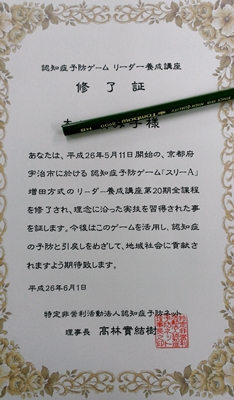 認知症予防ゲーム リーダー養成講座
修了証
様
Tombow
HB
あなたは、平成26年5月11日開始の、京都府
宇治市に於ける 認知症予防ゲーム「スリーA」
増田方式のリーダー養成講座第20期全課程
を修了され、理念に沿った実技を習得された事
を証します。今後はこのゲームを活用し、認知症
の予防と引戻しをめざして、地域社会に貢献さ
れますよう期待致します。
平成26年6月1日
特定非営利活動法人認知症予防ネット
理事長 高林實結樹